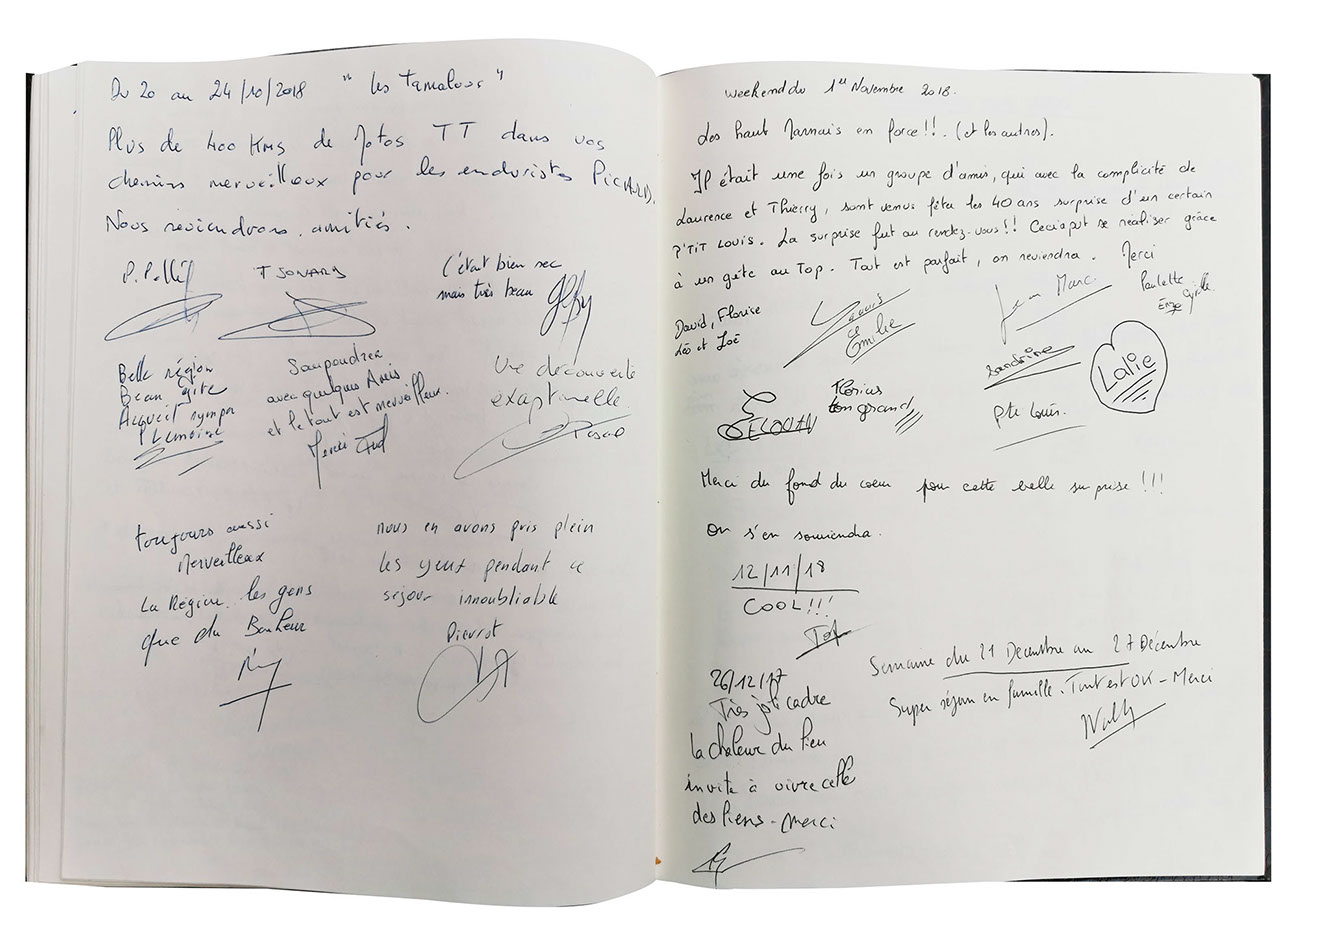 Du 20 au 24/10/2018 " Les Tamalous "
Plus de 400 Kms de Motos TT dans vos
chemins merveilleux pour les enduristes PICARDS.
Nous reviendrons. amitiés.
T JONARD
C'était bien sec
mais très beau
Belle région
Beau gîte
Accueil sympa
P Lemoine
Saupoudrer
avec quelques Amis
et le tout est merveilleux.
Merci
Une découverte
exaptionelle.
Pascal
toujours aussi
Merveilleux
La Région. les gens
que du Bonheur
nous en avons pris plein
les yeux pendant ce
séjour innoubliable
Pierrot
Weekend du 1er Novembre 2018.
Les haut Marnais en force!!. (et les autres).
Il était une fois un groupe d'amis, qui avec la complicité de
Laurence et Thierry, sont venus fêter les 40 ans surprise d'un certain
P'TIT LOUIS. La surprise fut au rendez-vous!! Ceci a put se réaliser grâce
à un gîte au Top. Tout est parfait, on reviendra. Merci
David, Florise
Léo et Zoë
Emilie
Jean Marc
Paulette
Enzo Cyrille
Sandrine
Lalie
Florius
ton grand
Ptit Louis.
Merci du fond du coeur pour cette belle surprise !!!
On s'en souviendra.
12/11/18
COOL!!!
Semaine du 21 Décembre au 27 Décembre
Super séjour en famille. Tout est OK - Merci
Wally
26/12/17
Très joli cadre
la chaleur du lieu
invite à vivre celle
des liens - Merci